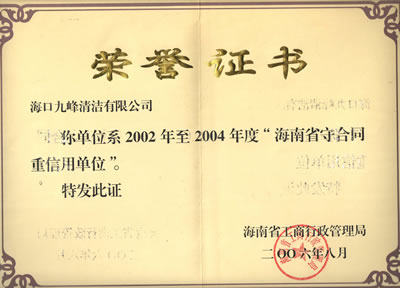 荣誉证书
海口九峰清洁有限公司
你单位系2002年至2004年度“海南省守合同
重信用单位”。
特发此证
海南省工商行政管理局
二〇〇六年八月